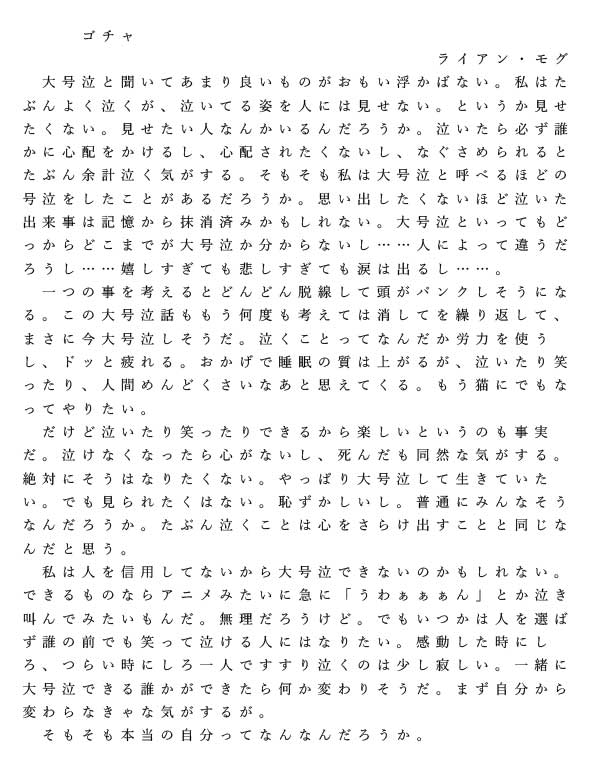 ゴチャ
ライアン・モグ
　大号泣と聞いてあまり良いものがおもい浮かばない。私はた
ぶんよく泣くが、泣いてる姿を人には見せない。というか見せ
たくない。見せたい人なんかいるんだろうか。泣いたら必ず誰
かに心配をかけるし、心配されたくないし、なぐさめられると
たぶん余計泣く気がする。そもそも私は大号泣と呼べるほどの
号泣をしたことがあるだろうか。思い出したくないほど泣いた
出来事は記憶から抹消済みかもしれない。大号泣といってもど
っからどこまでが大号泣か分からないし……人によって違うだ
ろうし……嬉しすぎても悲しすぎても涙は出るし……。
　一つの事を考えるとどんどん脱線して頭がパンクしそうにな
る。この大号泣話ももう何度も考えては消してを繰り返して、
まさに今大号泣しそうだ。泣くことってなんだか労力を使う
し、ドッと疲れる。おかげで睡眠の質は上がるが、泣いたり笑
ったり、人間めんどくさいなあと思えてくる。もう猫にでもな
ってやりたい。
　だけど泣いたり笑ったりできるから楽しいというのも事実
だ。泣けなくなったら心がないし、死んだも同然な気がする。
絶対にそうはなりたくない。やっぱり大号泣して生きていた
い。でも見られたくはない。恥ずかしいし。普通にみんなそう
なんだろうか。たぶん泣くことは心をさらけ出すことと同じな
んだと思う。
　私は人を信用してないから大号泣できないのかもしれない。
できるものならアニメみたいに急に「うわぁぁぁん」とか泣き
叫んでみたいもんだ。無理だろうけど。でもいつかは人を選ば
ず誰の前でも笑って泣ける人にはなりたい。感動した時にし
ろ、つらい時にしろ一人ですすり泣くのは少し寂しい。一緒に
大号泣できる誰かができたら何か変わりそうだ。まず自分から
変わらなきゃな気がするが。
　そもそも本当の自分ってなんなんだろうか。